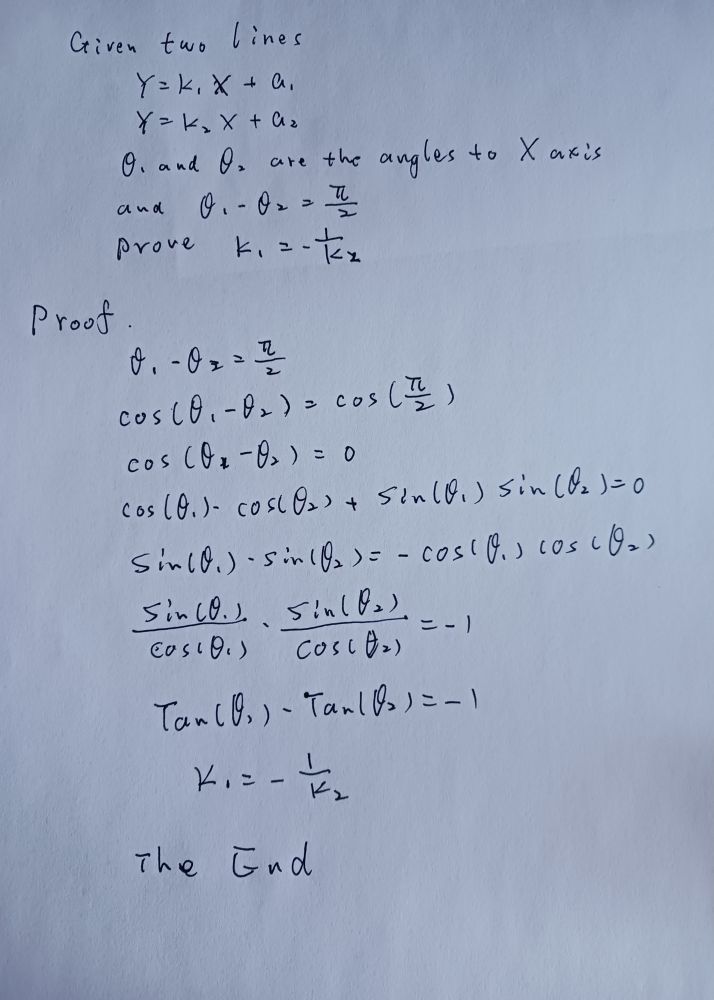 Given two lines
Y = k₁ X + a₁
Y = k₂ X + a₂
θ₁ and θ₂ are the angles to X axis
and θ₁ - θ₂ = π/2
prove k₁ = - 1/k₂
Proof.
θ₁ - θ₂ = π/2
cos(θ₁ - θ₂) = cos(π/2)
cos(θ₁ - θ₂) = 0
cos(θ₁)· cos(θ₂) + sin(θ₁) sin(θ₂) = 0
sin(θ₁) · sin(θ₂) = - cos(θ₁) cos(θ₂)
sin(θ₁)/cos(θ₁) · sin(θ₂)/cos(θ₂) = -1
Tan(θ₁) · Tan(θ₂) = -1
K₁ = - 1/K₂
The End